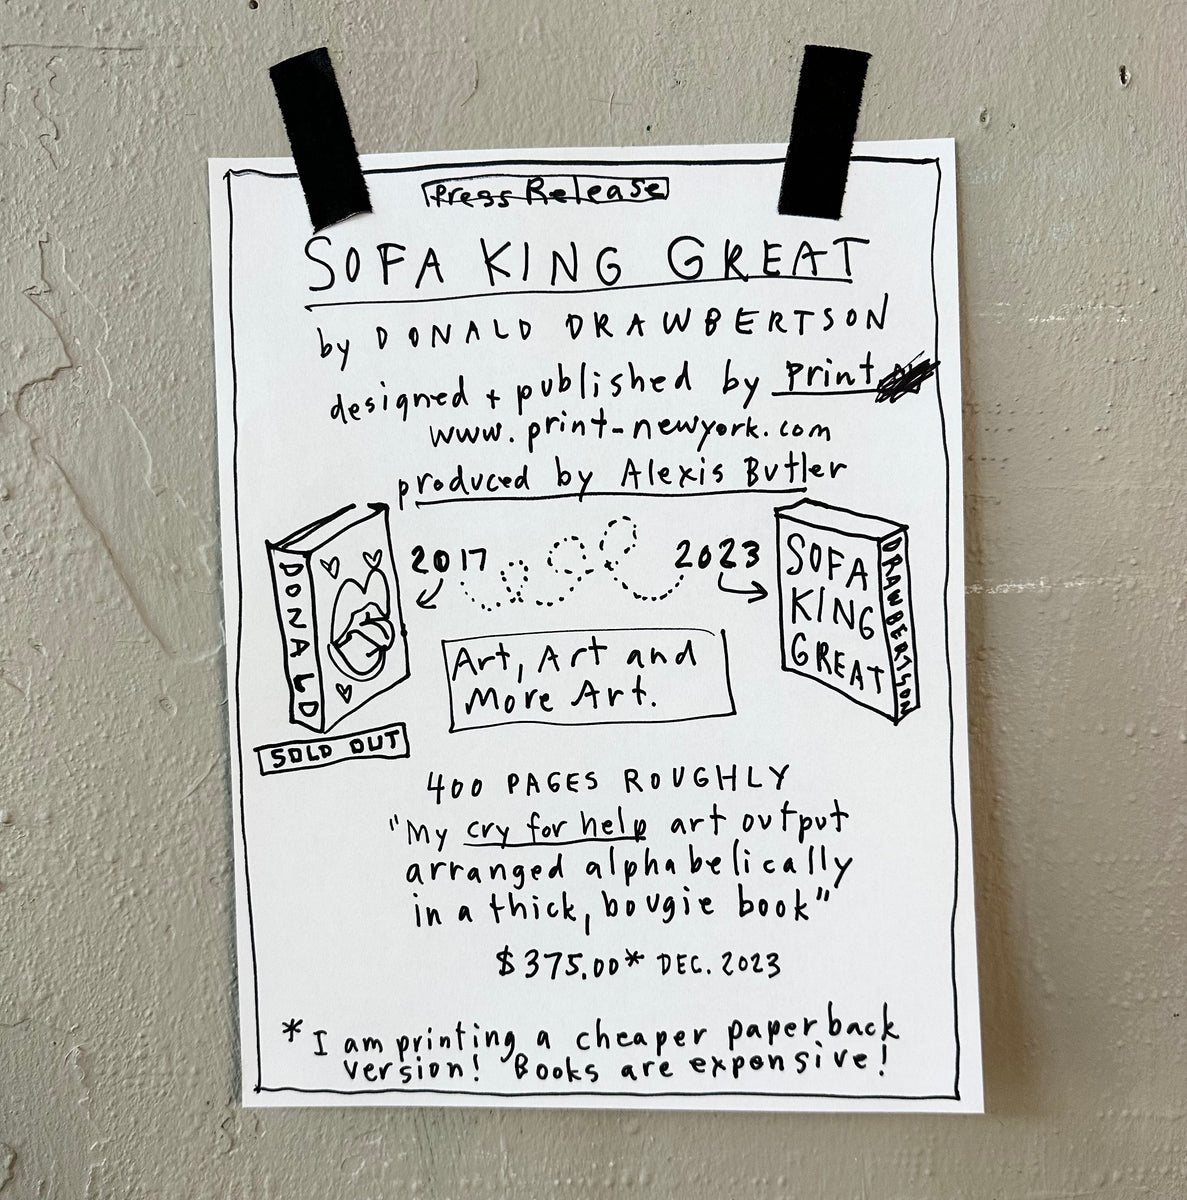 Press Release
SOFA KING GREAT
by DONALD DRAWBERTSON
designed + published by print
www.print-newyork.com
produced by Alexis Butler
2017
2023
DONALD
SOFA
KING
GREAT
DRAWBERTSON
Art, Art and
More Art.
SOLD OUT
400 PAGES ROUGHLY
"My cry for help art output
arranged alphabelically
in a thick, bougie book"
$375.00* DEC. 2023
* I am printing a cheaper paperback
version! Books are exponsive!